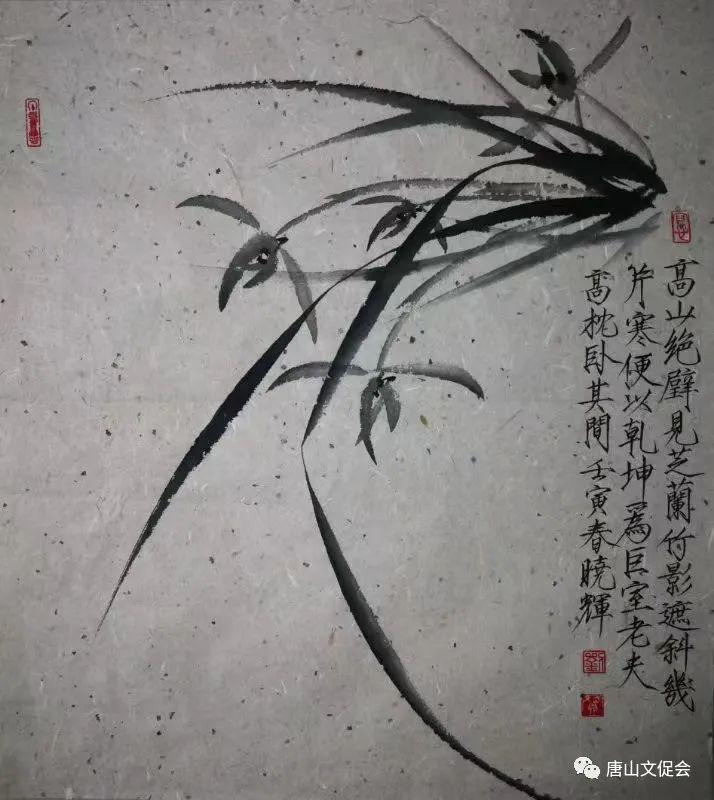 高山绝壁見芝蘭竹影遮斜幾
片寒便以乾坤爲巨室老夫
高枕卧其間壬寅春曉輝
唐山文促会